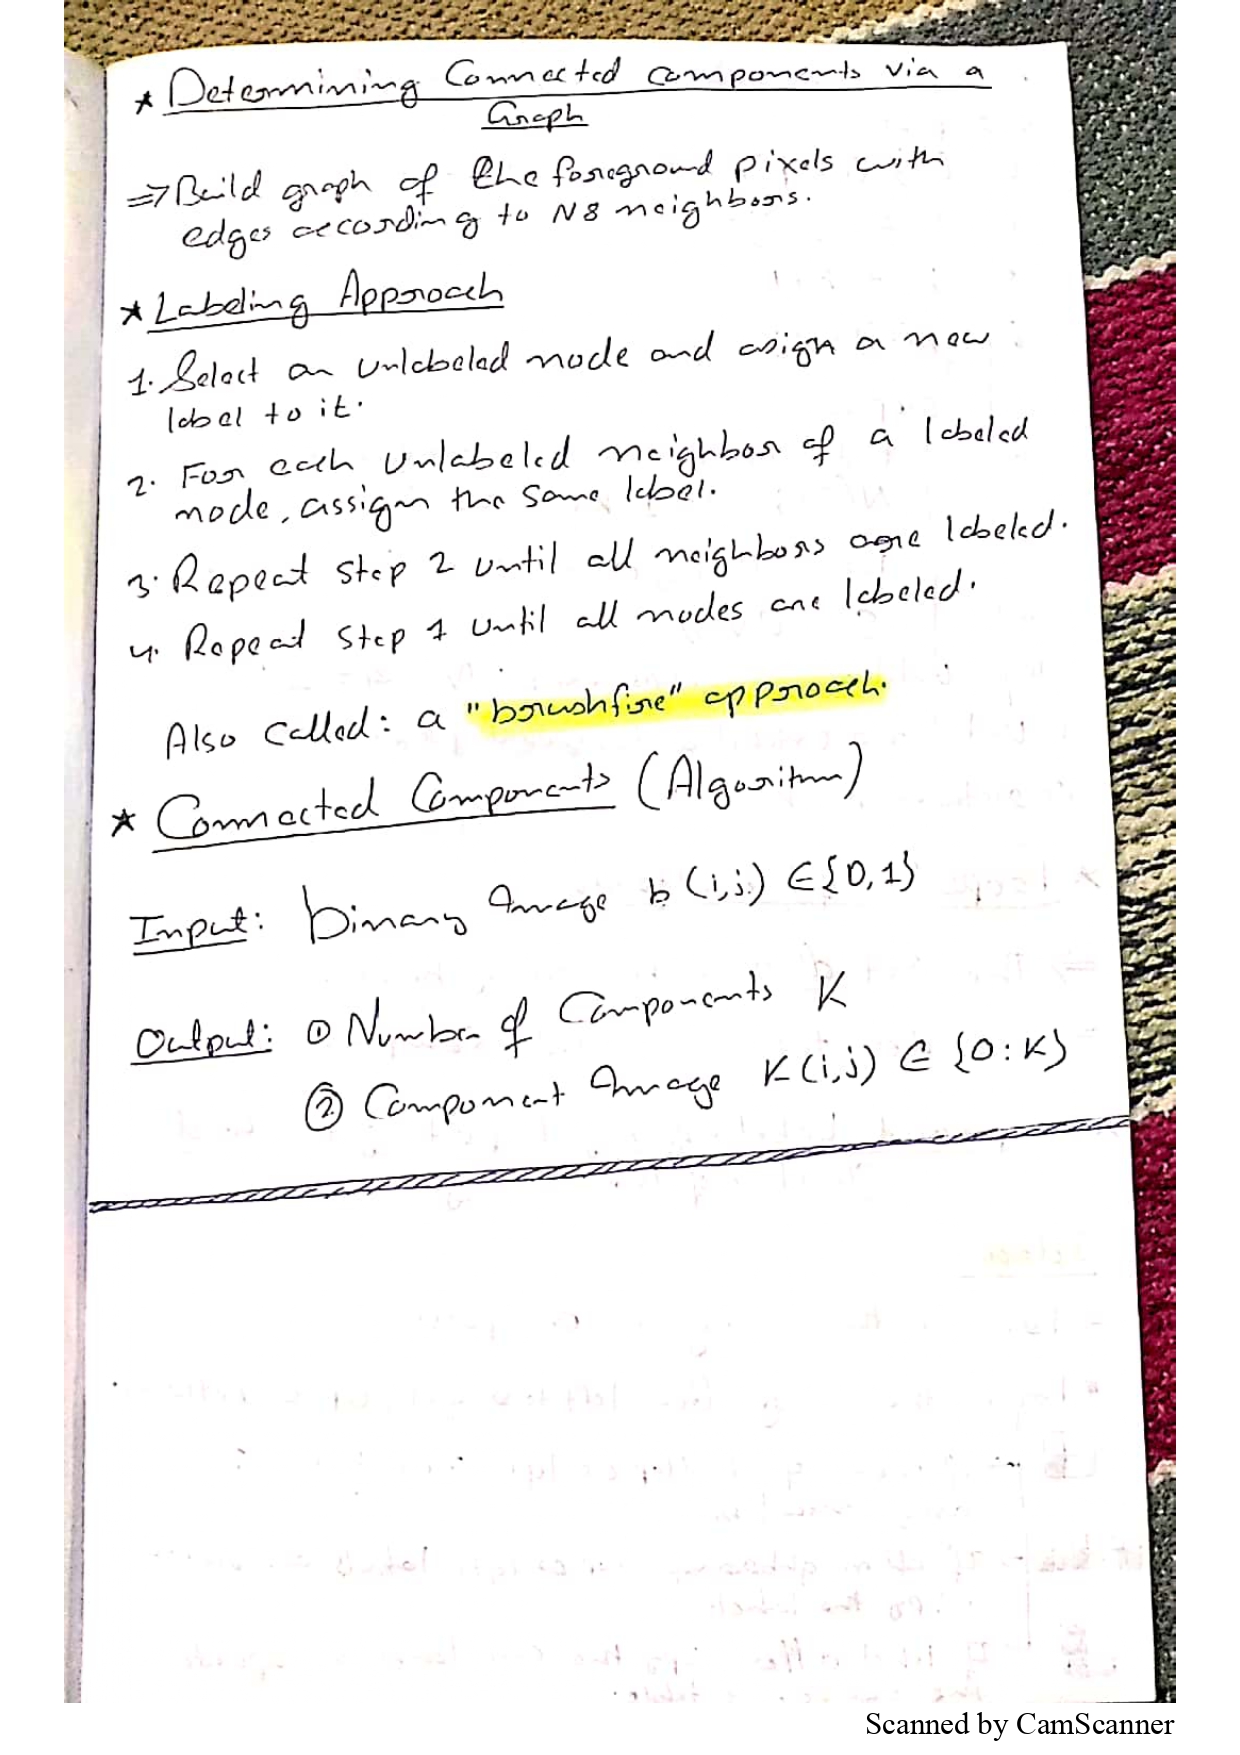 * Determining Connected components via a
Graph
=> Build graph of the foreground pixels with
edges according to N8 neighbors.
* Labeling Approach
1. Select an unlabeled node and asign a new
label to it.
2. For each unlabeled neighbor of a labeled
node, assign the same label.
3. Repeat Step 2 until all neighbors are labeled.
4. Repeat Step 1 until all nodes are labeled.
Also called: a "brushfire" approach.
* Connected Components (Algorithm)
Input: binary Image b(i,j) ∈ {0,1}
Output: ① Number of Components K
② Component Image K(i,j) ∈ {0:K}
Scanned by CamScanner